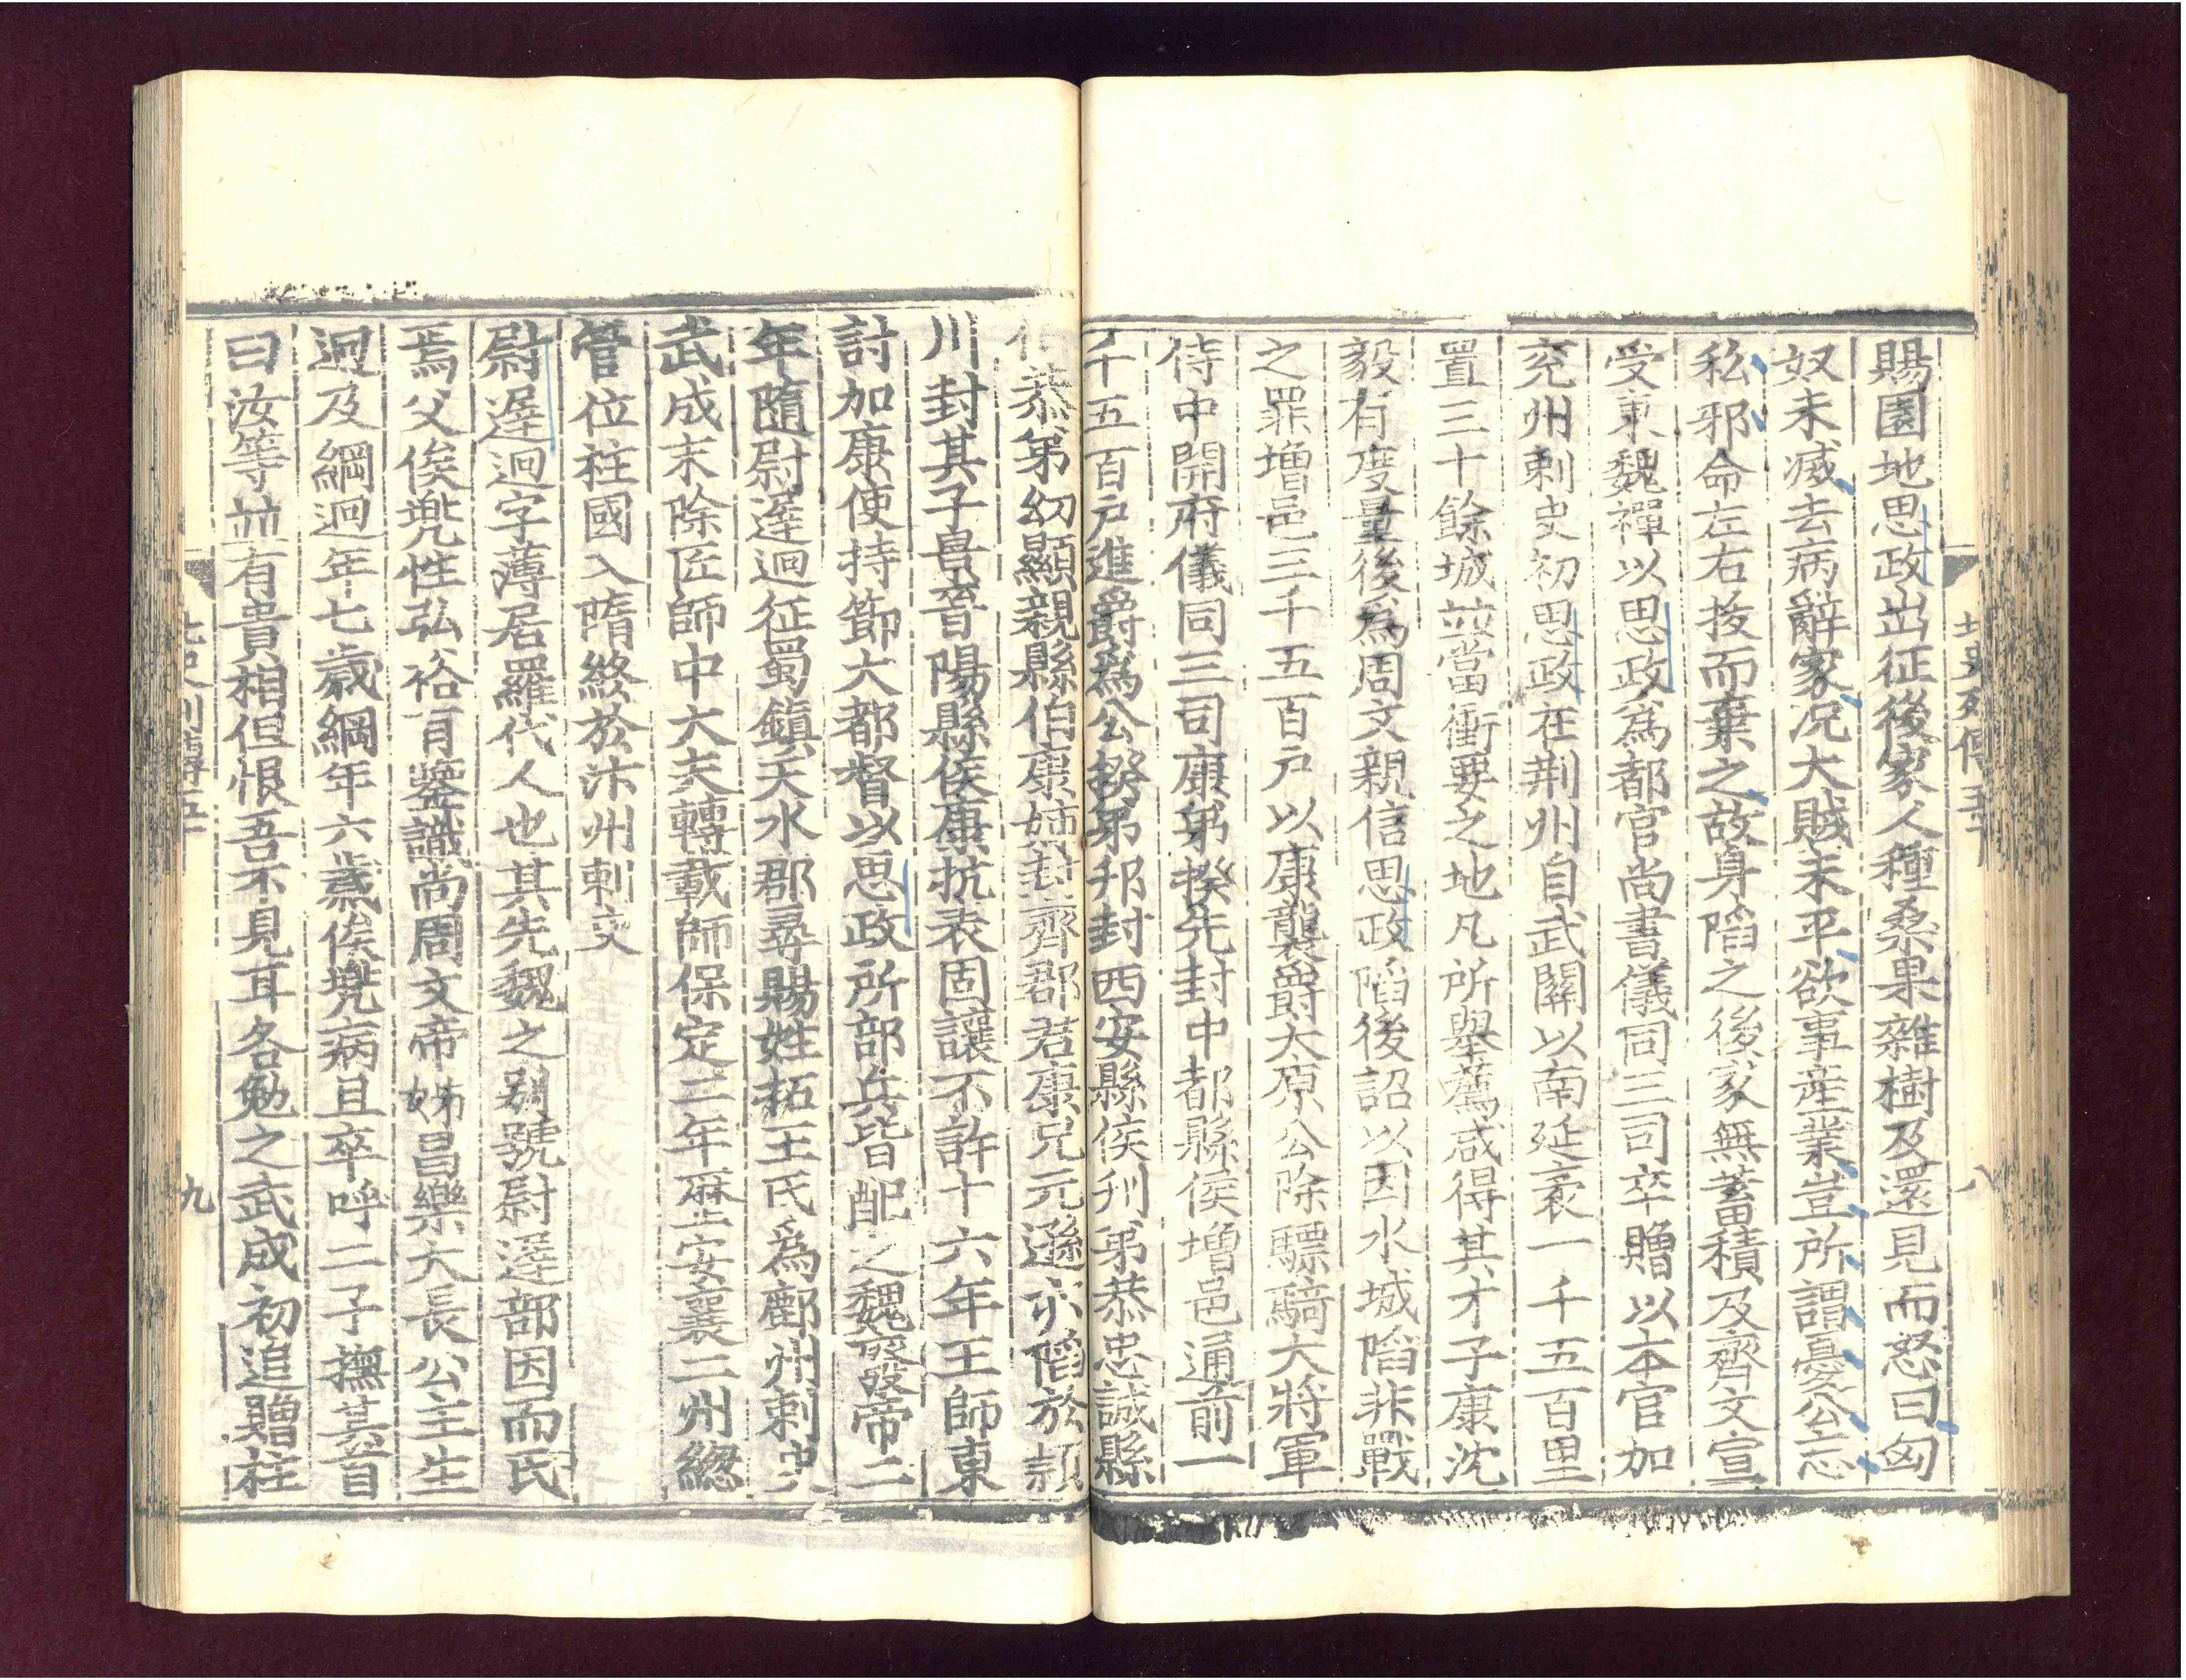 賜園地思政出征後家人種桑果雜樹及還見而怒曰匈
奴未滅去病辭家况大賊未平欲事産業豈所謂憂公忘
私邪命左右拔而棄之故身陷之後家無蓄積及齊文宣
受東魏禪以思政爲都官尚書儀同三司卒贈以本官加
兖州刺史初思政在荆州自武關以南延袤一千五百里
置三十餘城並當衝要之地凡所舉薦咸得其才子康沈
毅有度量後爲周文親信思政陷後詔以因水城陷非戰
之罪增邑三千五百户以康襲爵太原公除驃騎大將軍
侍中開府儀同三司康弟揆先封中都縣侯增邑通前一
千五百户進爵爲公揆弟邗封西安縣侯刋弟恭忠誠縣
伯恭弟幼顯親縣伯康姉封齊郡君康兄元遜亦陷於潁
川封其子景晉陽縣侯康抗表固讓不許十六年王師東
討加康使持節大都督以思政所部兵皆配之魏廢帝二
年隨尉遲迥征蜀鎮天水郡尋賜姓拓王氏爲鄜州刺史
武成末除匠師中大夫轉載師保定二年歷安襄二州總
管位柱國入隋終於汴州刺史
尉遲迥字薄居羅代人也其先魏之别號尉遲部因而氏
焉父俟兠性弘裕有鑒識尚周文帝姊昌樂大長公主生
迥及綱迥年七歲綱年六歲俟兠病且卒呼二子撫其首
曰汝等並有貴相但恨吾不見耳各勉之武成初追贈柱
北史列傳五十
八
北史列傳五十
九